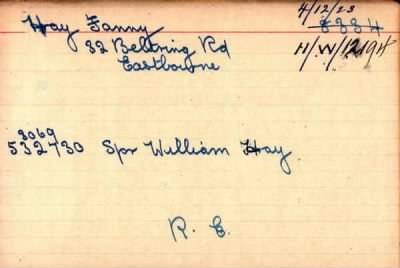 Hay Fanny
32 Beltring Rd
Eastbourne
4/12/23
8334
H/W/12194
8069
532730 Spr William Hay
R. E.